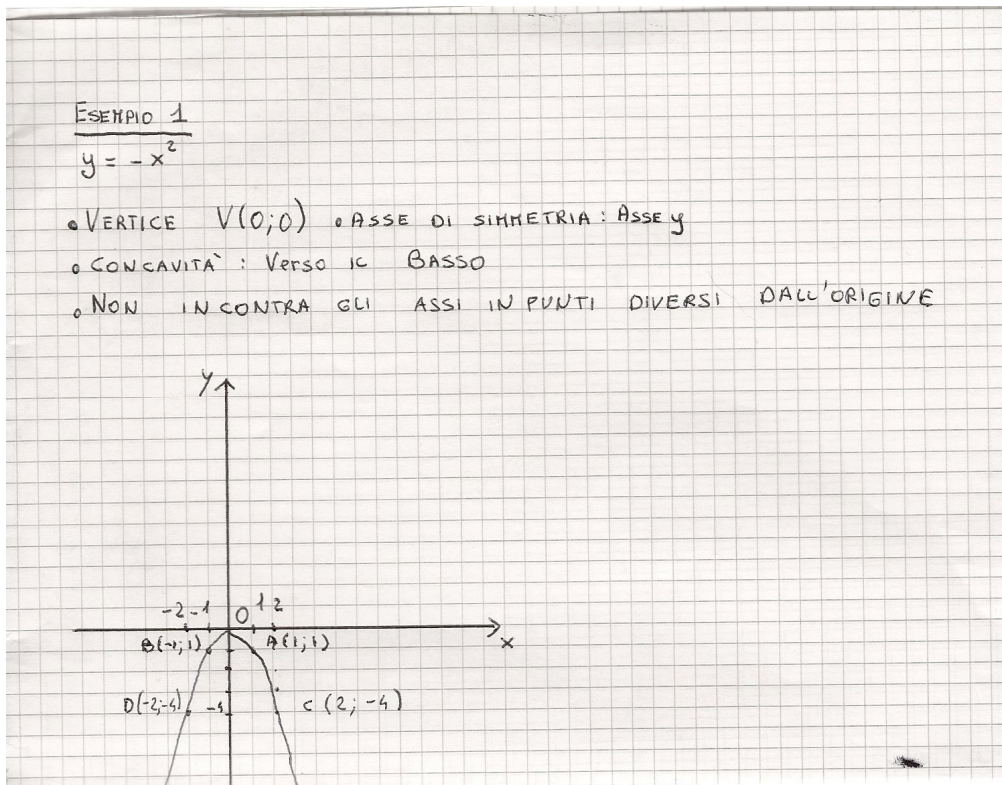 ESEMPIO 1
y = -x²
• VERTICE V(0;0) • ASSE DI SIMMETRIA: ASSE y
• CONCAVITÀ: Verso il BASSO
• NON INCONTRA GLI ASSI IN PUNTI DIVERSI DALL'ORIGINE
y
-2 -1 0 1 2
x
B(-1;1) A(1;1)
D(-2;-4) -4 C(2;-4)